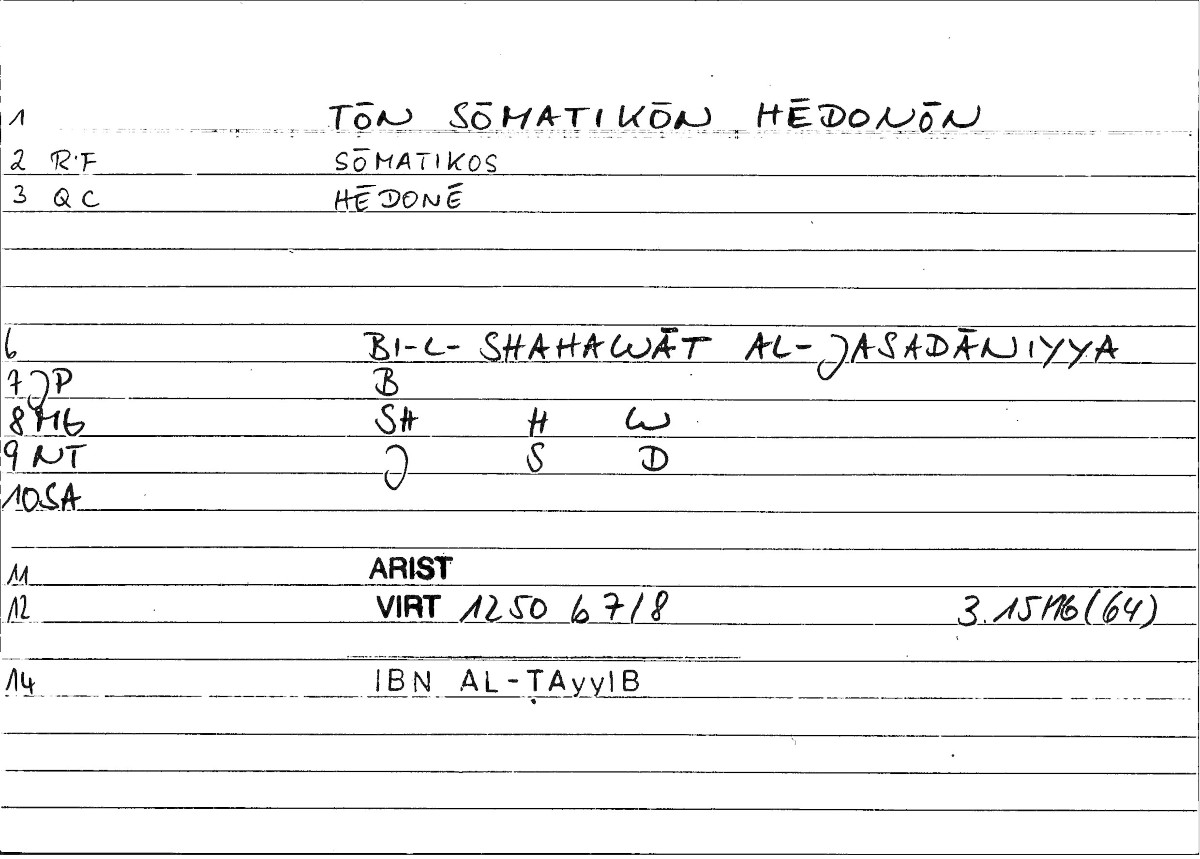 1 TŌN SŌMATIKŌN HĒDONŌN
2 R.F SŌMATIKOS
3 QC HĒDONĒ
6 BI-L-SHAHAWĀT AL-JASADĀNIYYA
7 JP B
8 MG SH H W
9 NT J S D
10 SA
11 ARIST
12 VIRT 1250 b 7/8 3.15 (64)
14 IBN AL-ṬAyyIB